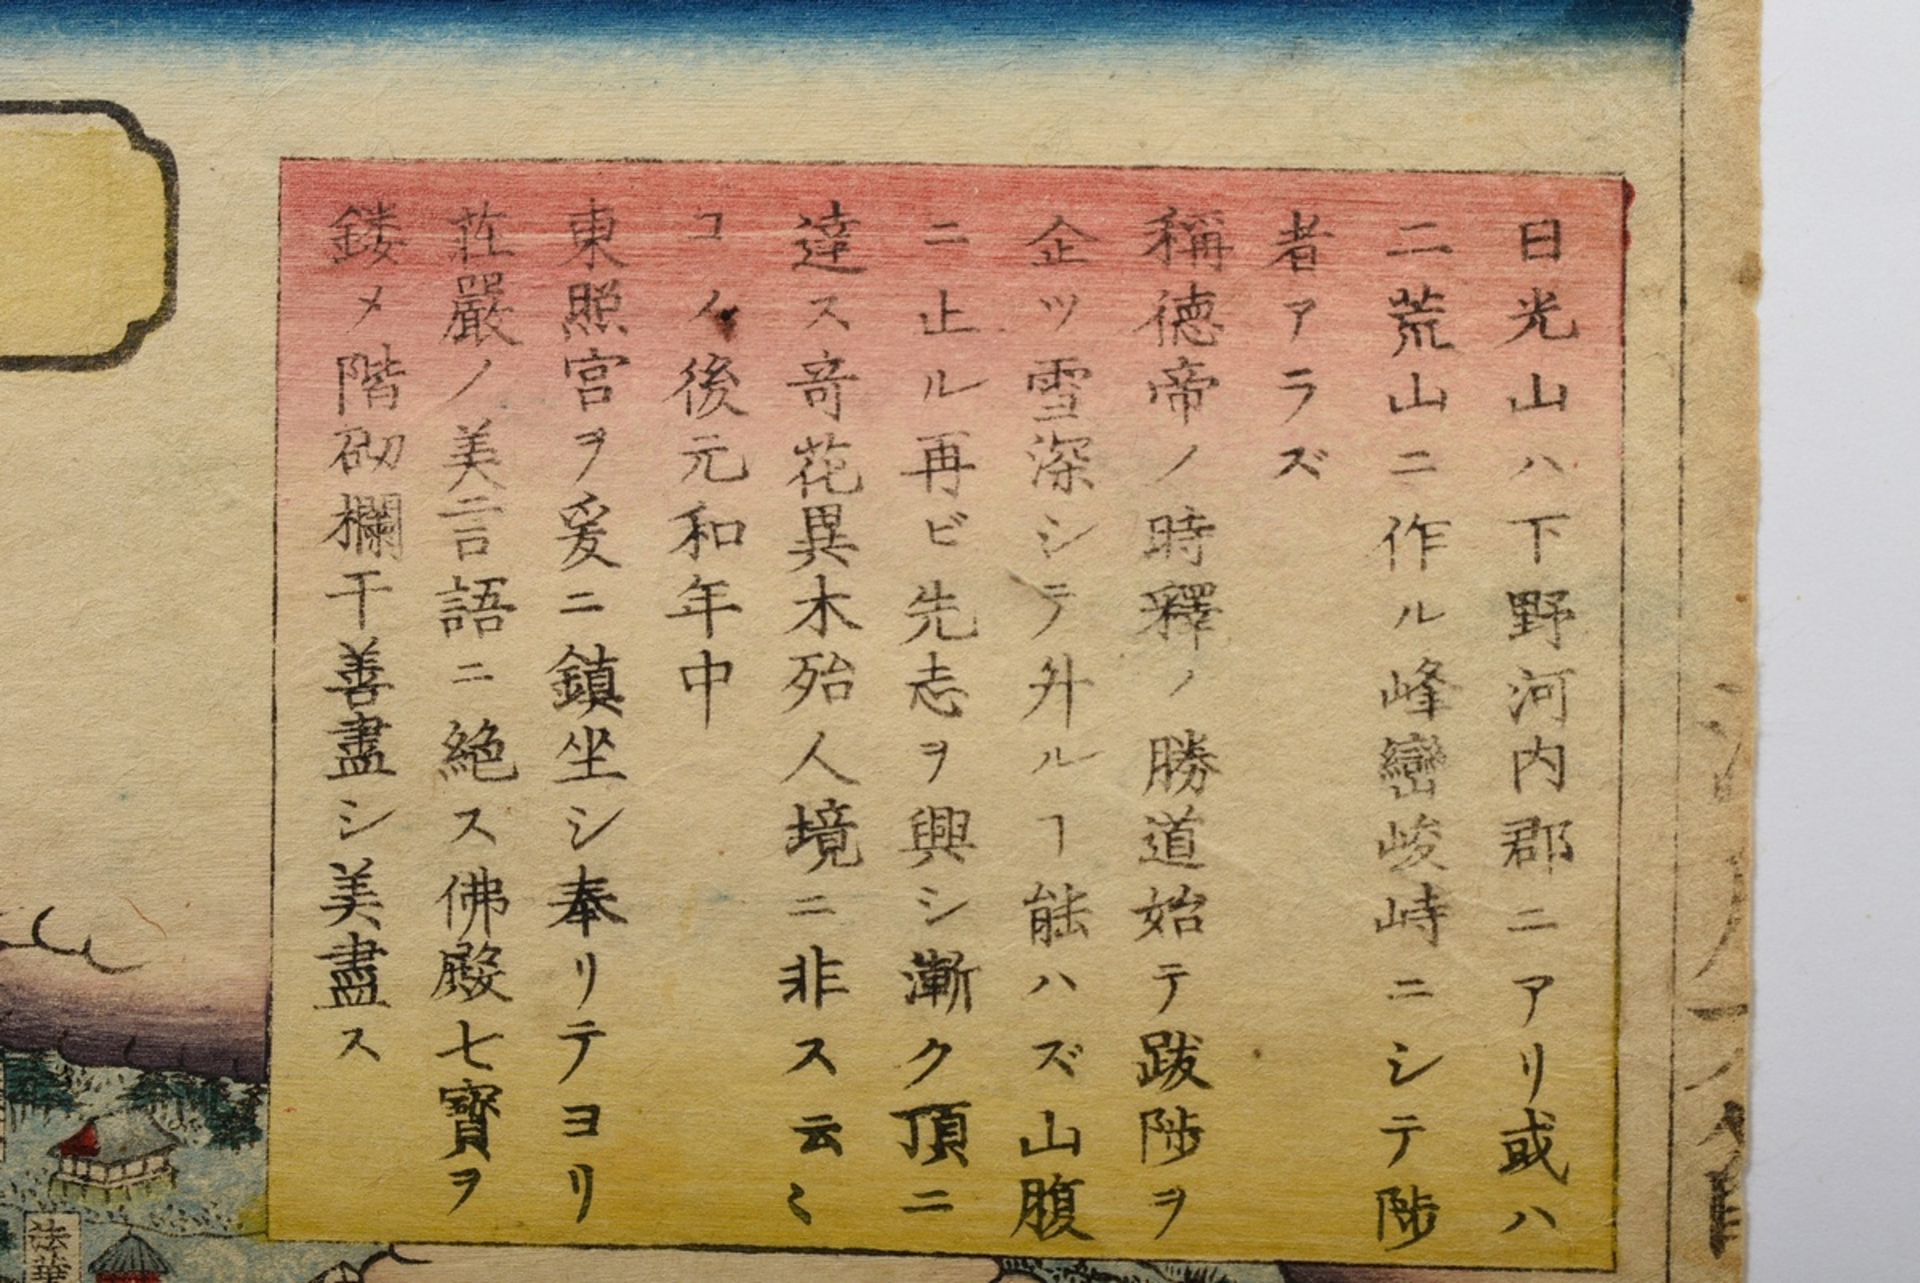 日光山ハ下野河内郡ニアリ或ハ
二荒山ニ作ル峰巒峻峙ニシテ陟
者アラズ
稱徳帝ノ時釋ノ勝道始テ跋陟ヲ
企ツ雪深シテ升ルヿ能ハズ山腹
ニ止ル再ビ先志ヲ興シ漸ク頂ニ
達ス竒花異木殆人境ニ非ス云〻
コノ後元和年中
東照宮ヲ爰ニ鎮坐シ奉リテヨリ
荘嚴ノ美言語ニ絶ス佛殿七寶ヲ
鏤メ階砌欄干善盡シ美盡ス
法華